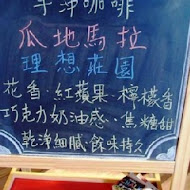 手沖咖啡
瓜地馬拉
理想莊園
花香·紅蘋果·檸檬香
巧克力奶油感·焦糖甜
乾淨細膩·餘味持久